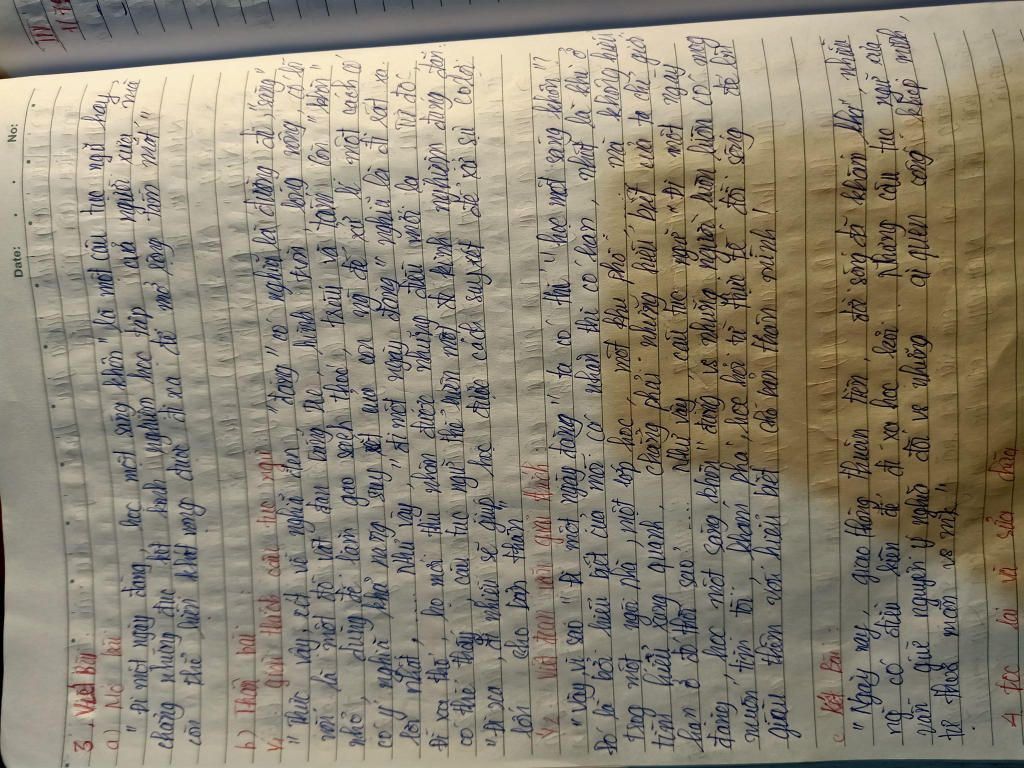 Date:
No:
3. Viết bài
a) Mở bài
"Đi một ngày đàng, học một sàng khôn" là một câu tục ngữ hay
chúng đúc kết kinh nghiệm học tập của người xưa mà
còn thể hiện khát vọng được đi xa để mở rộng tầm mắt"
b) Thân bài
V1 giải thích câu tục ngữ
"Thực vậy, xét về nghĩa đen "đàng" có nghĩa là đường đi, "sàng"
nói là một đồ vật đan bằng tre, hình tròn, lòng nông, có lỗ
nhỏ, dùng để làm gạo sạch thóc, trấu và tấm còn "khôn"
có ý nghĩa khả năng suy xét của con ng để xử lí một cách có
lợi nhất,.... Như vậy, "đi một ngày đàng" nghĩa là đi xa
đi xa đó, họ mới thu nhận được những điều mới lạ. Từ đó
có thể thấy câu tục ngữ thể hiện một kinh nghiệm đúng đắn:
"đi xa, đi nhiều sẽ giúp học được cách suy xét để xử sự có lợi
hơn cho bản thân"
V2 Viết đoạn văn giải thích
"Vậy, vì sao "đi một ngày đàng" ta có thể "học một sàng khôn"?
Đó là bởi hiểu biết của mỗi cá nhân thì có hạn, nhất là khi ở
trong một ngôi nhà, một lớp học, một khu phố mà không hiểu
tìm hiểu xung quanh. chẳng phải những hiểu biết của ta chỉ gói
hạn ở đó thôi sao,.... Như vậy câu tục ngữ "đi một ngày
đàng, học một sàng khôn" đúng vs những người luôn có mong
muốn, tìm tòi, khám phá, học hỏi từ thực tế đời sống để bồi
thêm vốn hiểu biết cho mở thân mình!
c. Kết bài:
"Ngày nay, giao thông thuận tiện, đời sống đã khấm khá, nhiều
ng có điều kiện để đi xa học hỏi. Nhưng câu tục ngữ của
vẫn giữ nguyên ý nghĩa đối vs những ai quen sống khép mình,
tự thoả mãn vs mk"
4 Đọc lại và sửa chữa